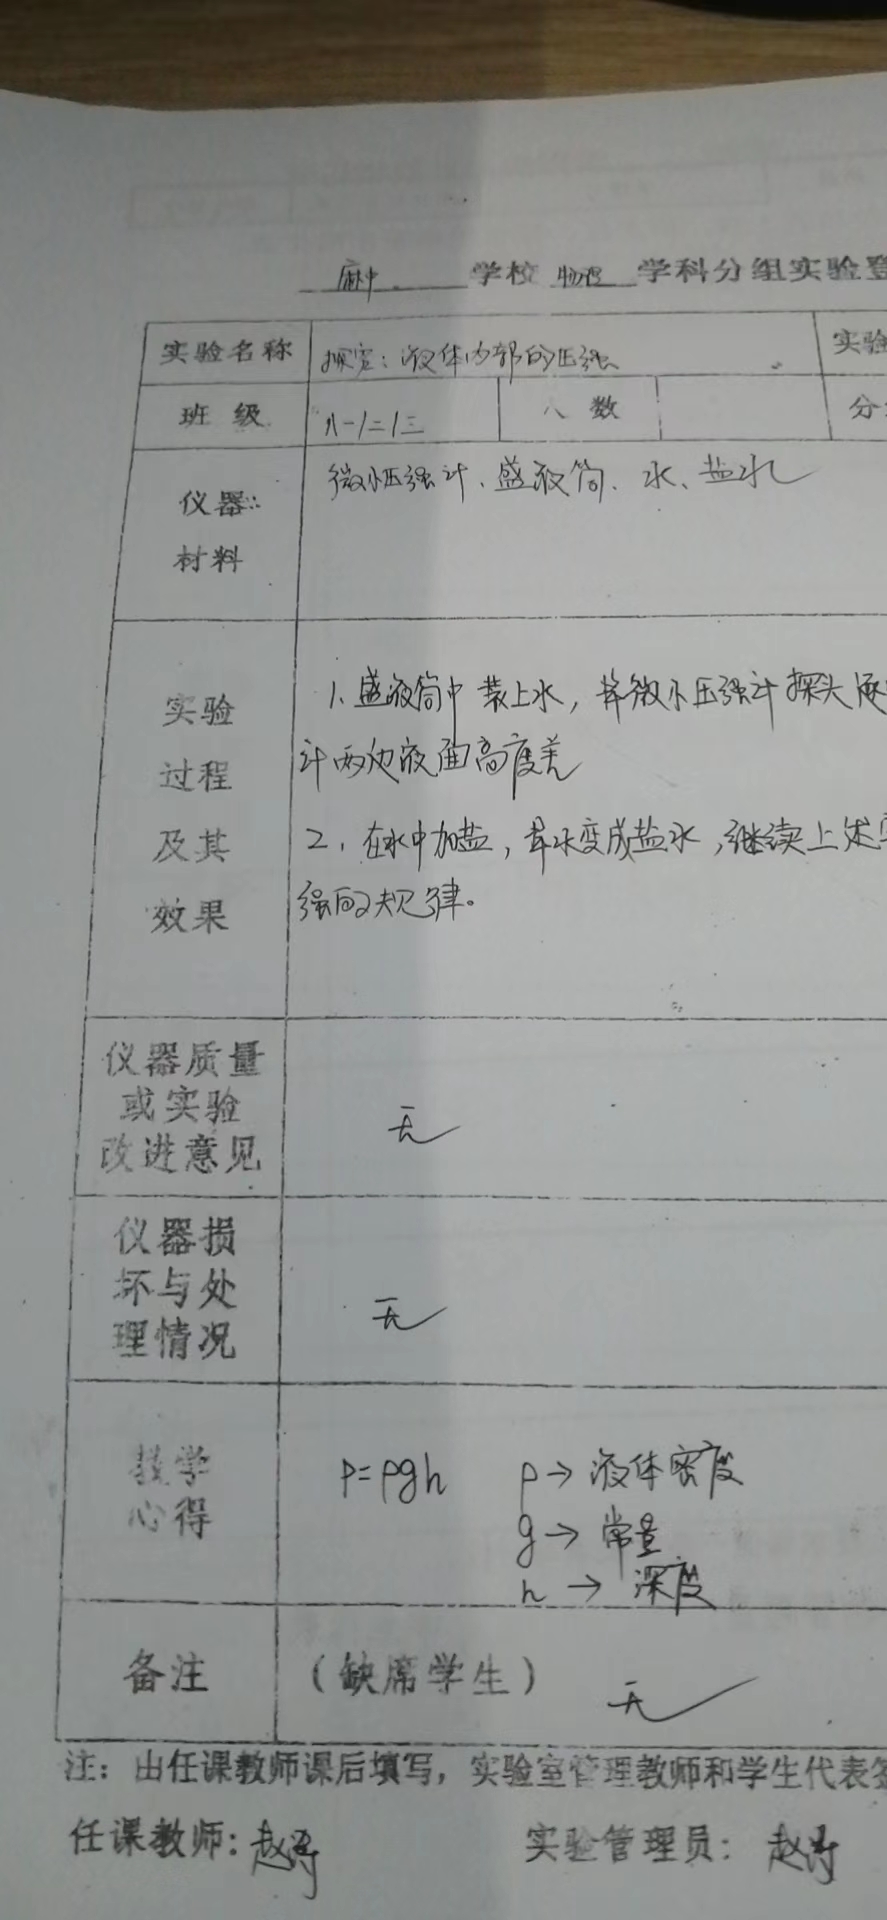 麻中 学校 物理 学科分组实验登
实验名称 探究：液体内部的压强 实验
班级 八-1=1三 人数 分
仪器 微小压强计、盛液筒、水、盐水
材料
实验 1、盛液筒中装上水，将微小压强计探头逐
过程 计两边液面高度差
及其 2、在水中加盐，将水变成盐水，继续上述
效果 强的规律。
仪器质量
或实验 无
改进意见
仪器损
坏与处 无
理情况
教学 P=ρgh ρ→液体密度
心得 g→常量
h→深度
备注 （缺席学生） 无
注：由任课教师课后填写，实验室管理教师和学生代表签
任课教师：赵涛 实验管理员：赵涛